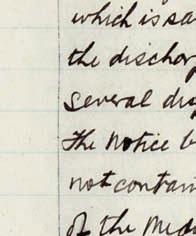 which is sa
the dischar
several du
The Notice b
not contain
of the Med